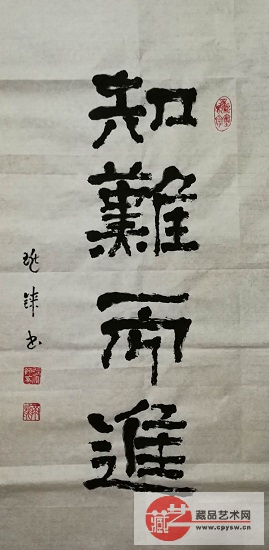 知難而進
藏品艺术网
www.cpysw.cn